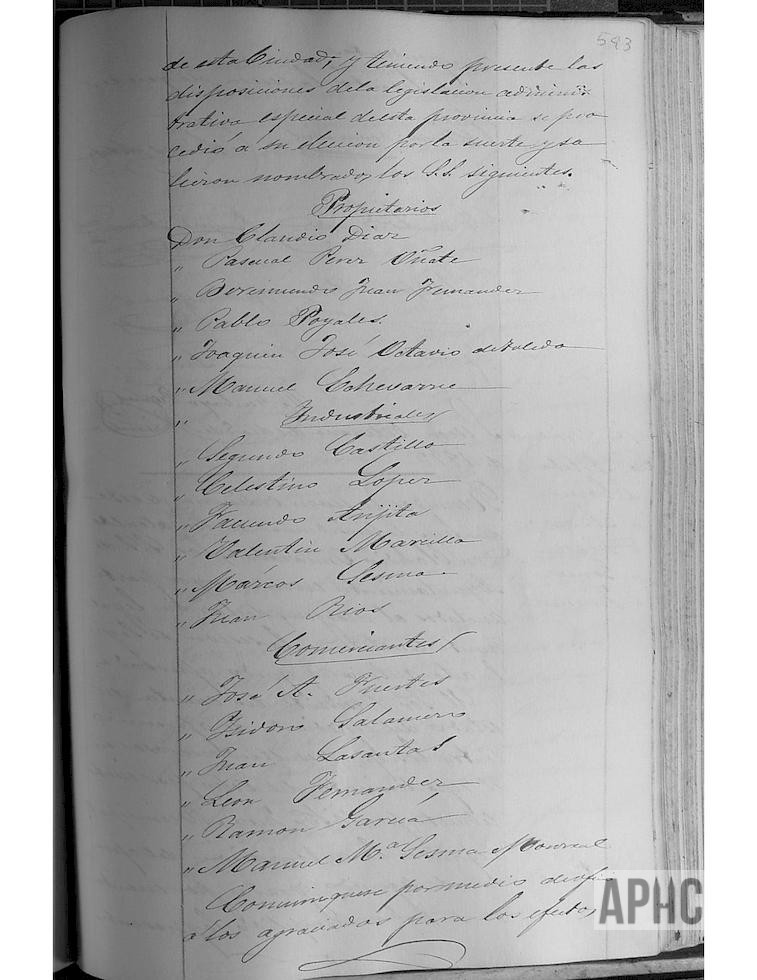 593
de esta Ciudad, y teniendo presente las
disposiciones de la legislacion adminis-
trativa especial de esta provincia se pro
cedió a su eleccion por la suerte y sa
lieron nombrados los S.S. siguientes.
Propietarios
Don Claudio Diaz
" Pascual Perez Oñate
" Beremundo Juan Fernandez
" Pablo Poyales.
" Joaquin José Octavio de toledo
" Manuel Echevarria
" Industriales
" Segundo Castillo
" Celestino Lopez
" Facundo Arijita
" Valentin Marcilla
" Márcos Sesma
" Juan Rios
Comerciantes
" José A. Fuertes
" Isidoro Salamero
" Juan Lasanta
" Leon Fernandez
" Ramon García
" Manuel M.ª Sesma Monreal
Comuniquese por medio de ofi
a los agraciados para los efectos
APHC